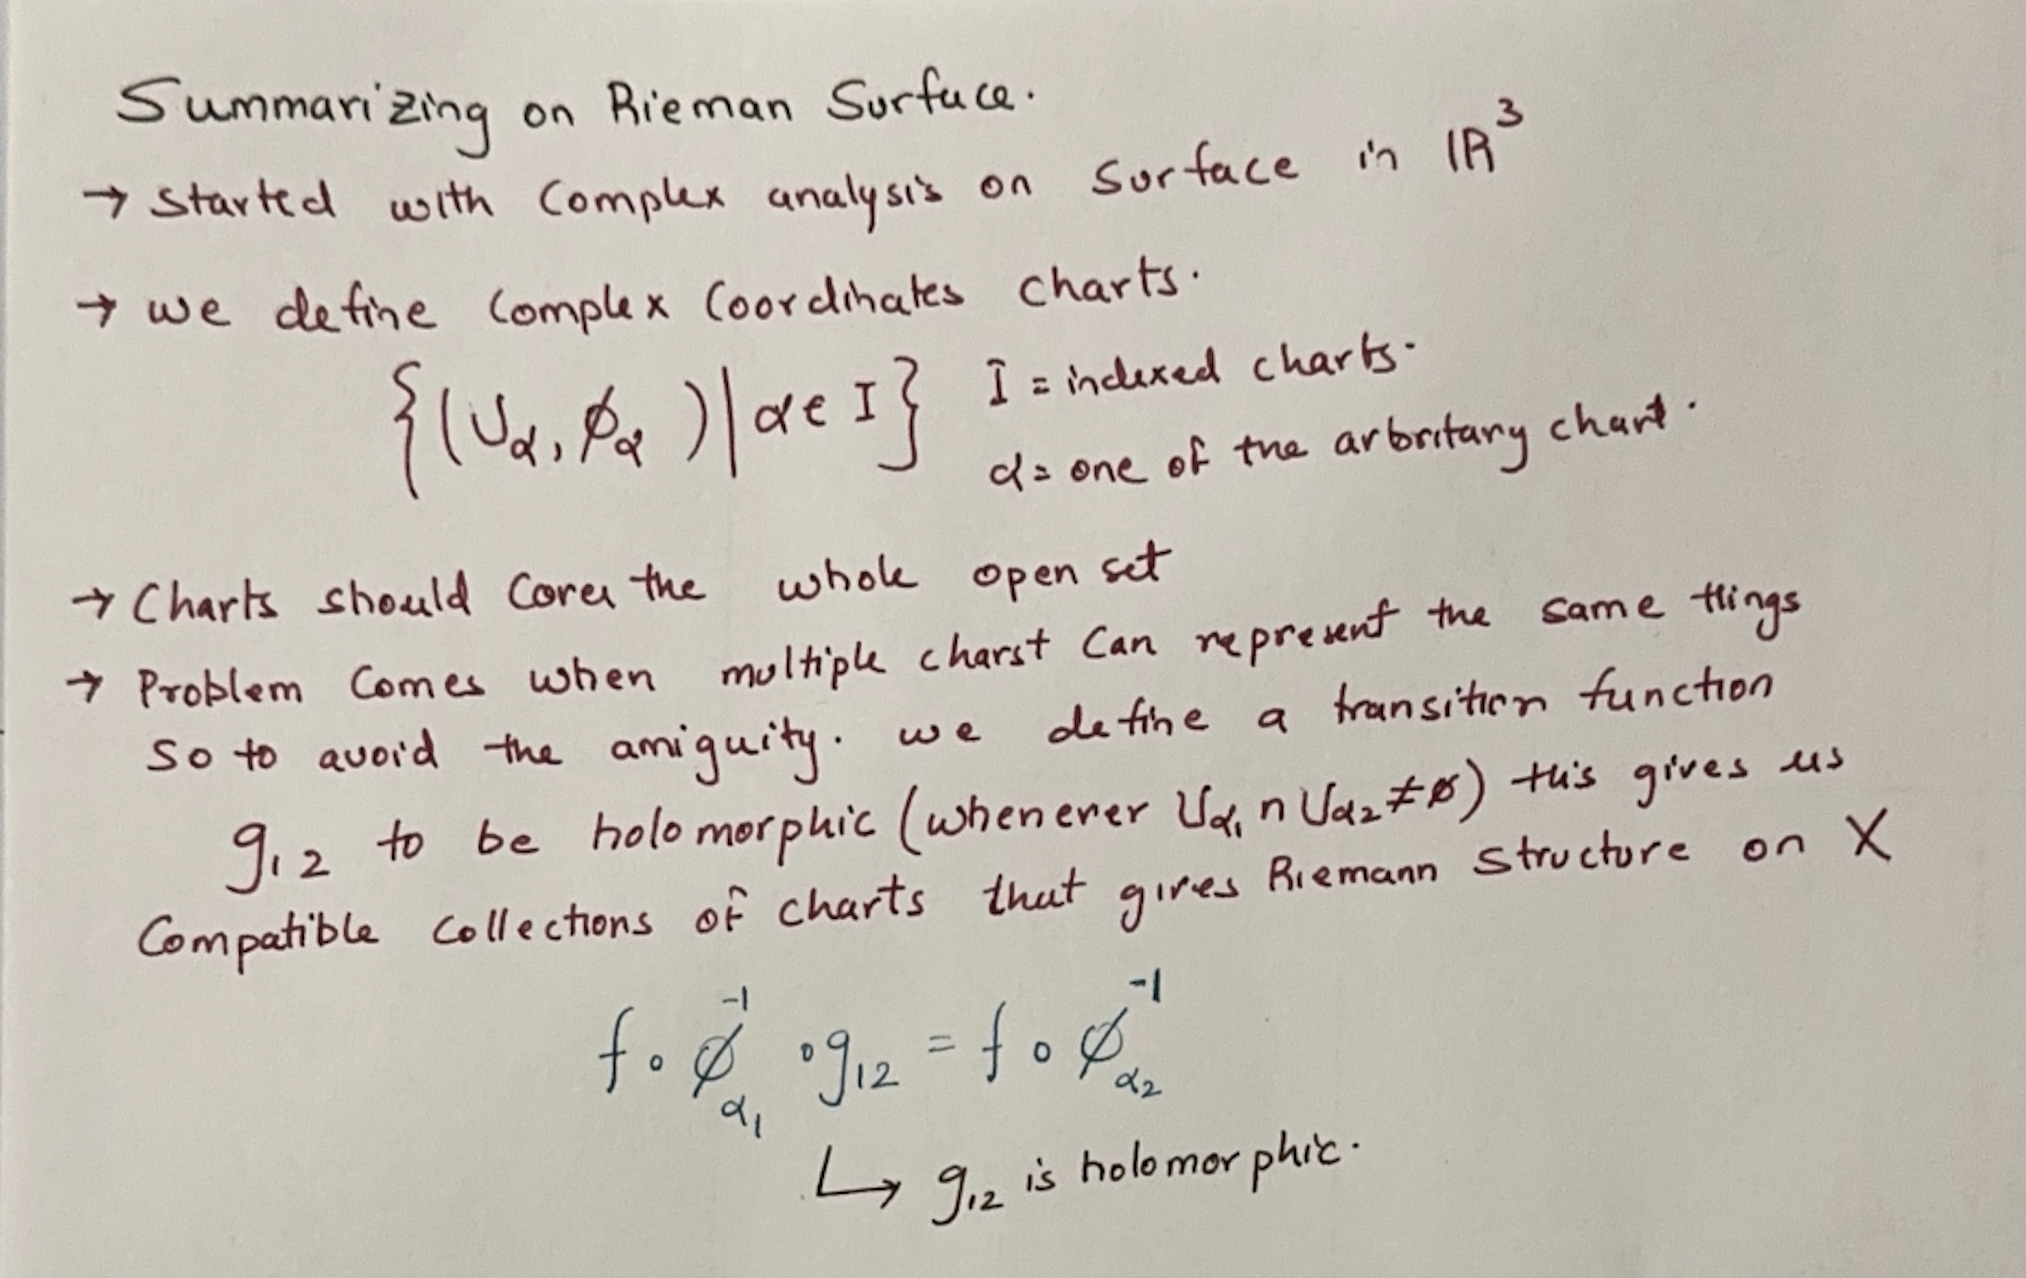 Summarizing on Rieman Surface.
→ Started with Complex analysis on Surface in ℝ³
→ we define Complex Coordinates charts.
{(Uα, ϕα)|α∈I} I = indexed charts.
α = one of the arbritary chart.
→ Charts should Cover the whole open set
→ Problem Comes when multiple charst Can represent the same things
So to avoid the amiguity. we define a transition function
g₁₂ to be holomorphic (whenever Uα₁ ∩ Uα₂ ≠ ø) this gives us
Compatible Collections of charts that gives Riemann Structure on X
f∘ϕ⁻¹α₁ ∘g₁₂ = f∘ϕ⁻¹α₂
↳ g₁₂ is holomorphic.